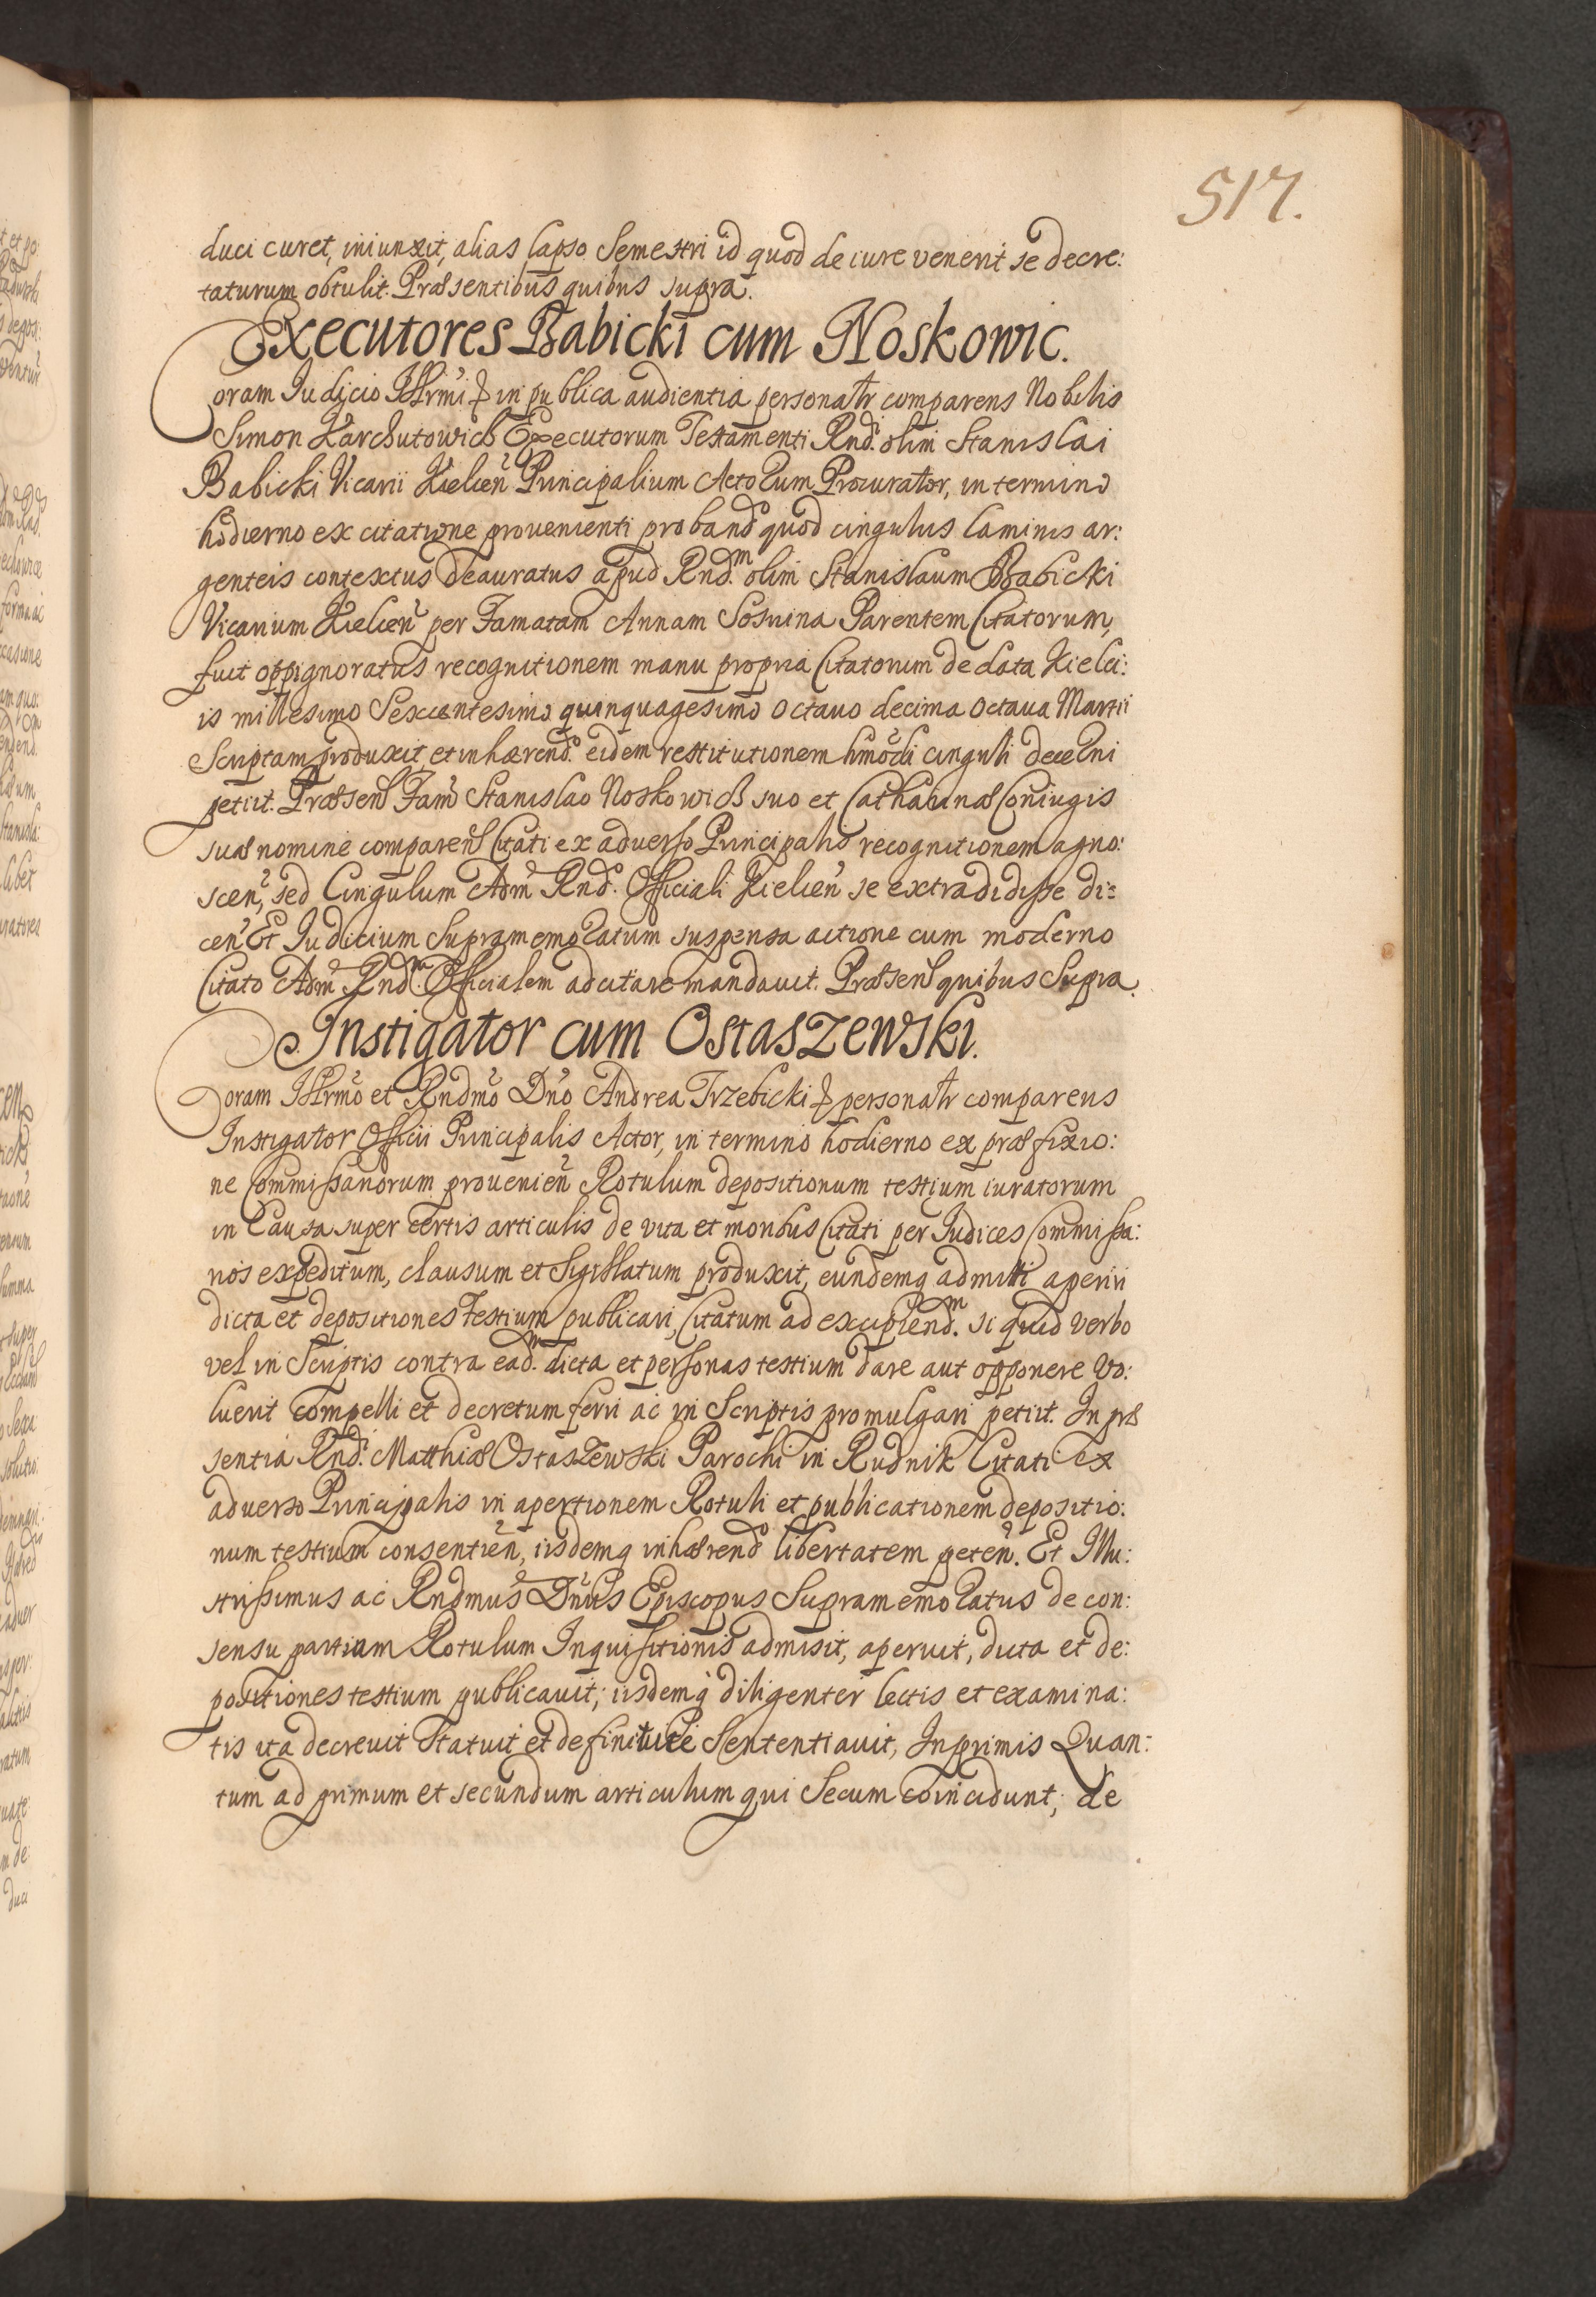 517.
duci curet, iniunxit, alias lapso Semestri id quod de iure venerit se decre:
taturum obtulit. Præsentibus quibus supra.
Executores Babicki cum Noskowic.
Coram Judicio Illrmi & in publica audientia personalr comparens Nobilis
Simon Karchutowicz Executorum Testamenti Rndi olim Stanislai
Babicki Vicarii Kielcen Principalium Actorum Procurator, in termino
hodierno ex citatione provenienti proband quod cingulus laminis ar:
genteis contextus deauratus apud Rndm. olim Stanislaum Babicki
Vicarium Kielcen per Famatam Annam Sosnina Parentem Citatorum,
fuit oppignoratus recognitionem manu propria Citatorum de data Kielci:
is millesimo Sexcentesimo quinquagesimo octauo decima octaua Martii
Scriptam produxit, et inhærend. eidem restitutionem hmodi cinguli decerni
petiit. Præsen Fam Stanislao Noskowicz suo et Catharinæ Coniugis
suæ nomine comparen Citati ex aduerso Principalis recognitionem agno:
scen, sed Cingulum Adm Rnd. Officiali Kielcen se extradidisse di=
cen Et Judicium Supramemoratum suspensa actione cum moderno
Citato Adm Rndm. Officialem adcitare mandauit. Præsen quibus Supra.
Instigator cum Ostaszewski.
Coram Illrmo et Rndmo Dno Andrea Trzebicki & personalr comparens
Instigator Officii Principalis Actor, in termino hodierno ex præfixio:
ne Commissariorum prouenien Rotulum depositionum testium iuratorum
in Causa super certis articulis de vita et moribus Citati per Judices Commissa:
rios expeditum, clausum et Sigillatum produxit, eundemq admitti aperiri
dicta et depositiones Testium publicari, Citatum ad excipiendm. si quid verbo
vel in Scriptis contra eadm. dicta et personas testium dare aut opponere vo:
luerit compelli et decretum ferri ac in Scriptis promulgari petiit. In præ
sentia Rndi Matthiæ Ostaszewski Parochi in Rudnik Citati ex
aduerso Principalis in apertionem Rotuli et publicationem depositio:
num testium consentien, iisdemq inhærend libertatem peten. Et Illu:
strissimus ac Rndmus Dnus Episcopus Supramemoratus de con:
sensu partium Rotulum Inquisitionis admisit, aperuit, dicta et de:
positiones testium publicauit; iisdemq diligenter lectis et examina:
tis ita decreuit statuit et definitiue Sententiauit, Inprimis Quan:
tum ad primum et secundum articulum qui Secum coincidunt, de